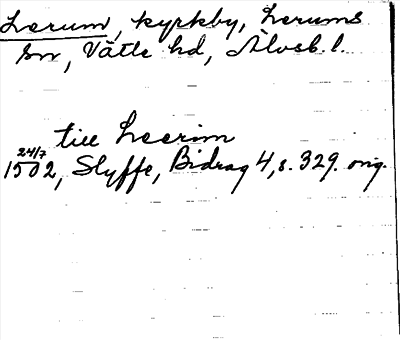 Lerum, kyrkby, Lerums
sn, Vätle hd, Älvsb. l.
till Leerim
24/7
1502, Styffe, Bidrag 4, s. 329. orig.